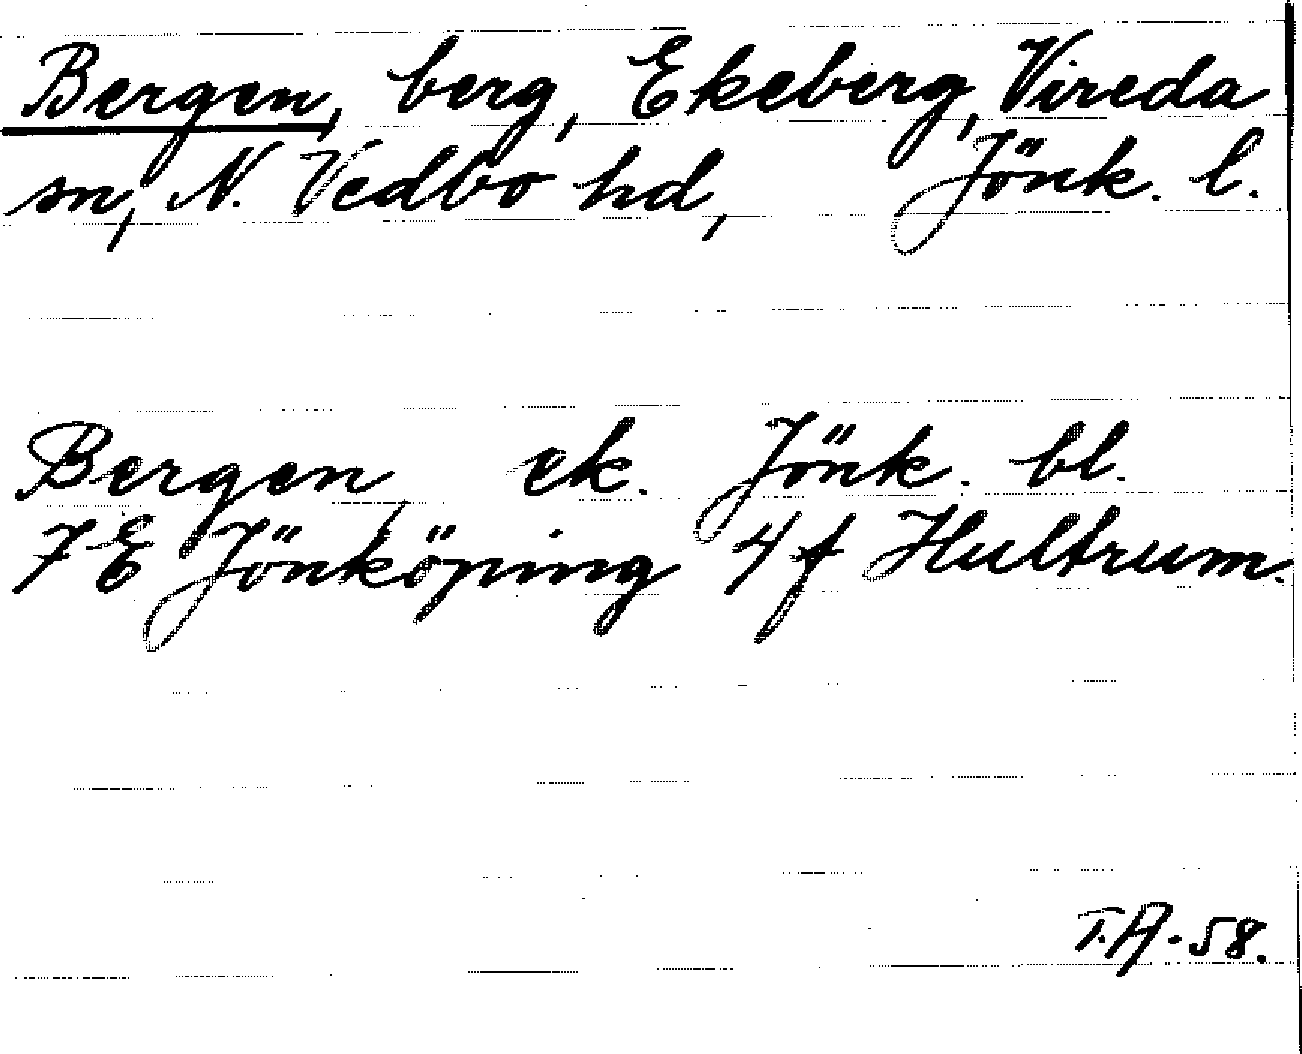 Bergen, berg, Ekeberg, Vireda
sn, N. Vedbo hd, Jönk. l.
Bergen ek. Jönk. bl.
7E Jönköping 4f Hultrum.
T.A-58.